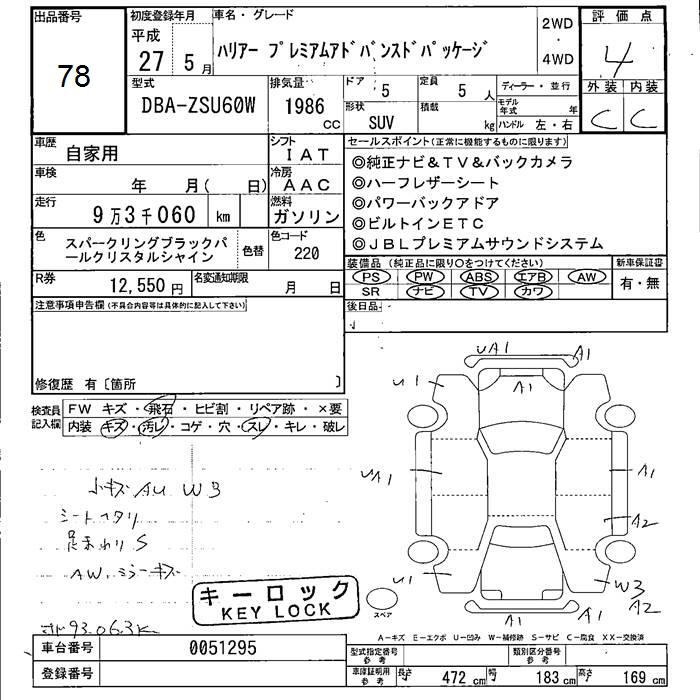 出品番号
78
初度登録年月
平成
27 5月
車名・グレード
ハリアー プレミアムアドバンスドパッケージ
2WD
・
4WD
評価点
4
外装 内装
C C
型式
DBA-ZSU60W
排気量
1986
cc
ドア 5
定員 5 人
形状
SUV
積載
kg
ディーラー・並行
モデル年式 年
ハンドル 左・右
車歴
自家用
シフト
IAT
車検
年 月( 日)
冷房
AAC
走行
9万3千060 km
燃料
ガソリン
色
スパークリングブラックパ
ールクリスタルシャイン
色替
色コード
220
R券
12,550円
名変通知期限
月 日
セールスポイント(正常に機能するものに限ります)
◎純正ナビ&TV&バックカメラ
◎ハーフレザーシート
◎パワーバックアドア
◎ビルトインETC
◎JBLプレミアムサウンドシステム
装備品(純正品に限り○をつけてください)
PS PW ABS エアB AW
SR ナビ TV カワ
新車保証書
有・無
後日品
注意事項申告欄(不具合内容等は具体的に記入して下さい)
修復歴 有〔箇所 〕
検査員
記入欄
FW キズ・飛石・ヒビ割・リペア跡・×要
内装 キズ・汚レ・コゲ・穴・スレ・キレ・破レ
小キズ AU W3
シートヘタリ
足まわりS
AW、ミラーキズ
キーロック
KEY LOCK
93.063K
UA1
A1
U1
A1
A1
UA1
A1
A2
U1
W3
A2
A1
A1
スペア
A-キズ E-エクボ U-凹み W-補修跡 S-サビ C-腐食 XX-交換済
車台番号
0051295
登録番号
型式指定番号
参考
類別区分番号
参考
車庫証明用
参考
長さ 472 cm 幅 183 cm 高さ 169 cm